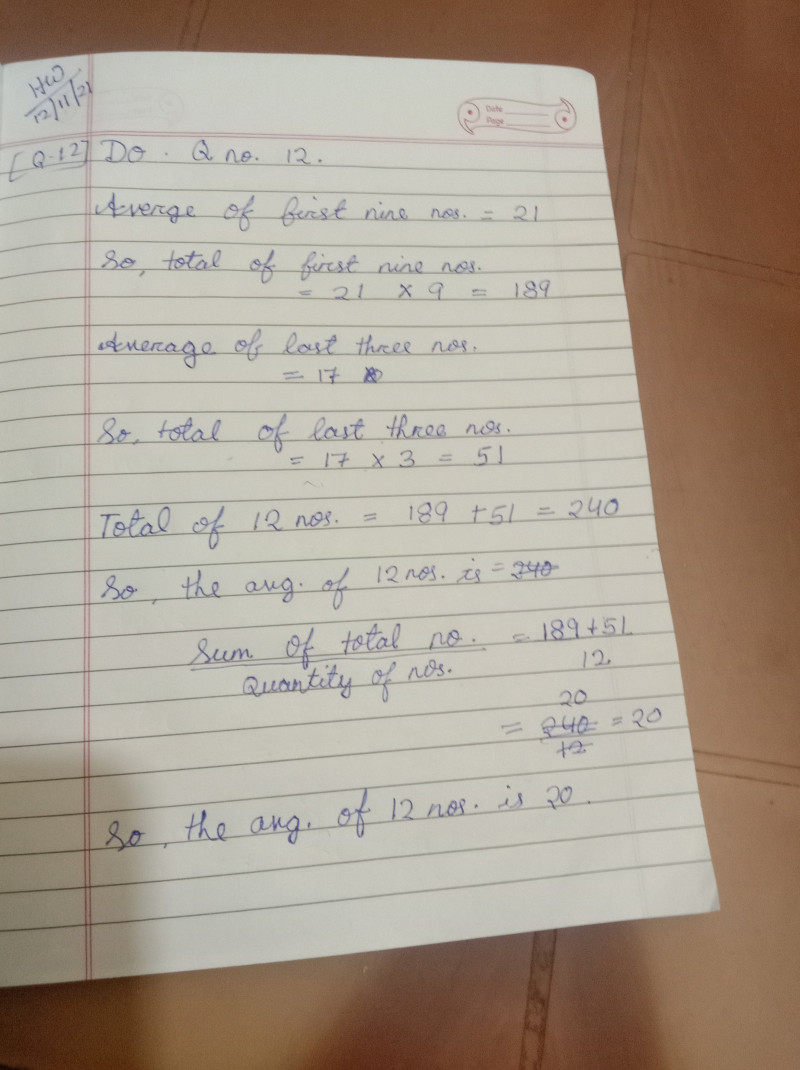 HW
12/11/21
Date
Page
[Q.12] Do. Q no. 12.
Averge of first nine nos. = 21
So, total of first nine nos.
= 21 × 9 = 189
Average of last three nos.
= 17
So, total of last three nos.
= 17 × 3 = 51
Total of 12 nos. = 189 + 51 = 240
So, the avg. of 12 nos. is = 240
Sum of total no. = 189+51
Quantity of nos. 12
20
= 240 = 20
12
So, the avg. of 12 nos. is 20.